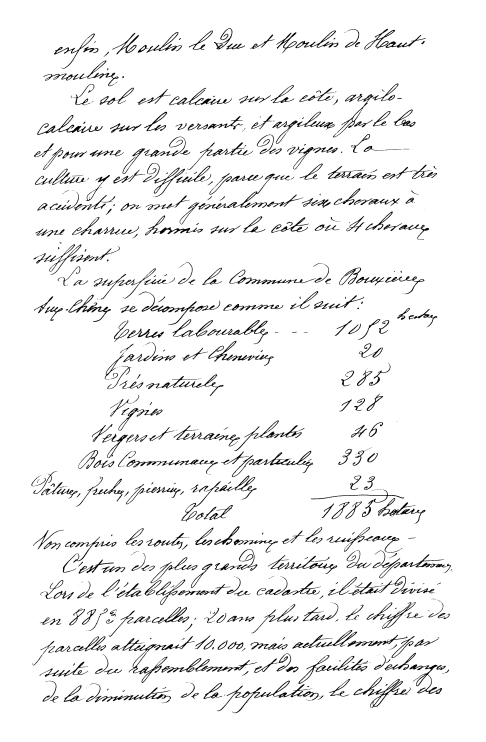 enfin, Moulin le Duc et Moulin de Haut-
moulins.
Le sol est calcaire sur la côte, argilo-
calcaire sur les versants, et argileux par le bas
et pour une grande partie des vignes. La
culture y est difficile, parce que le terrain est très
accidenté; on met généralement six chevaux à
une charrue, hormis sur la côte où 4 chevaux
suffisent.
La superficie de la Commune de Bouxières
Aux-Chênes se décompose comme il suit:
Terres labourables - - - 1052 hectares
Jardins et Chenevières 20
Prés naturels 285
Vignes 128
Vergers et terrains plantés 46
Bois Communaux et particuliers 330
Pâtures, friches, pierriers, rapailles 23
Total 1885 hectares
Non compris les routes, les chemins et les ruisseaux -
C'est un des plus grands territoires du département.
Lors de l'établissement du cadastre, il était divisé
en parcelles; 20 ans plus tard, le chiffre des
parcelles atteignait 10.000, mais actuellement, par
suite du rassemblement, et des facilités d'échanges,
de la diminution de la population, le chiffre des